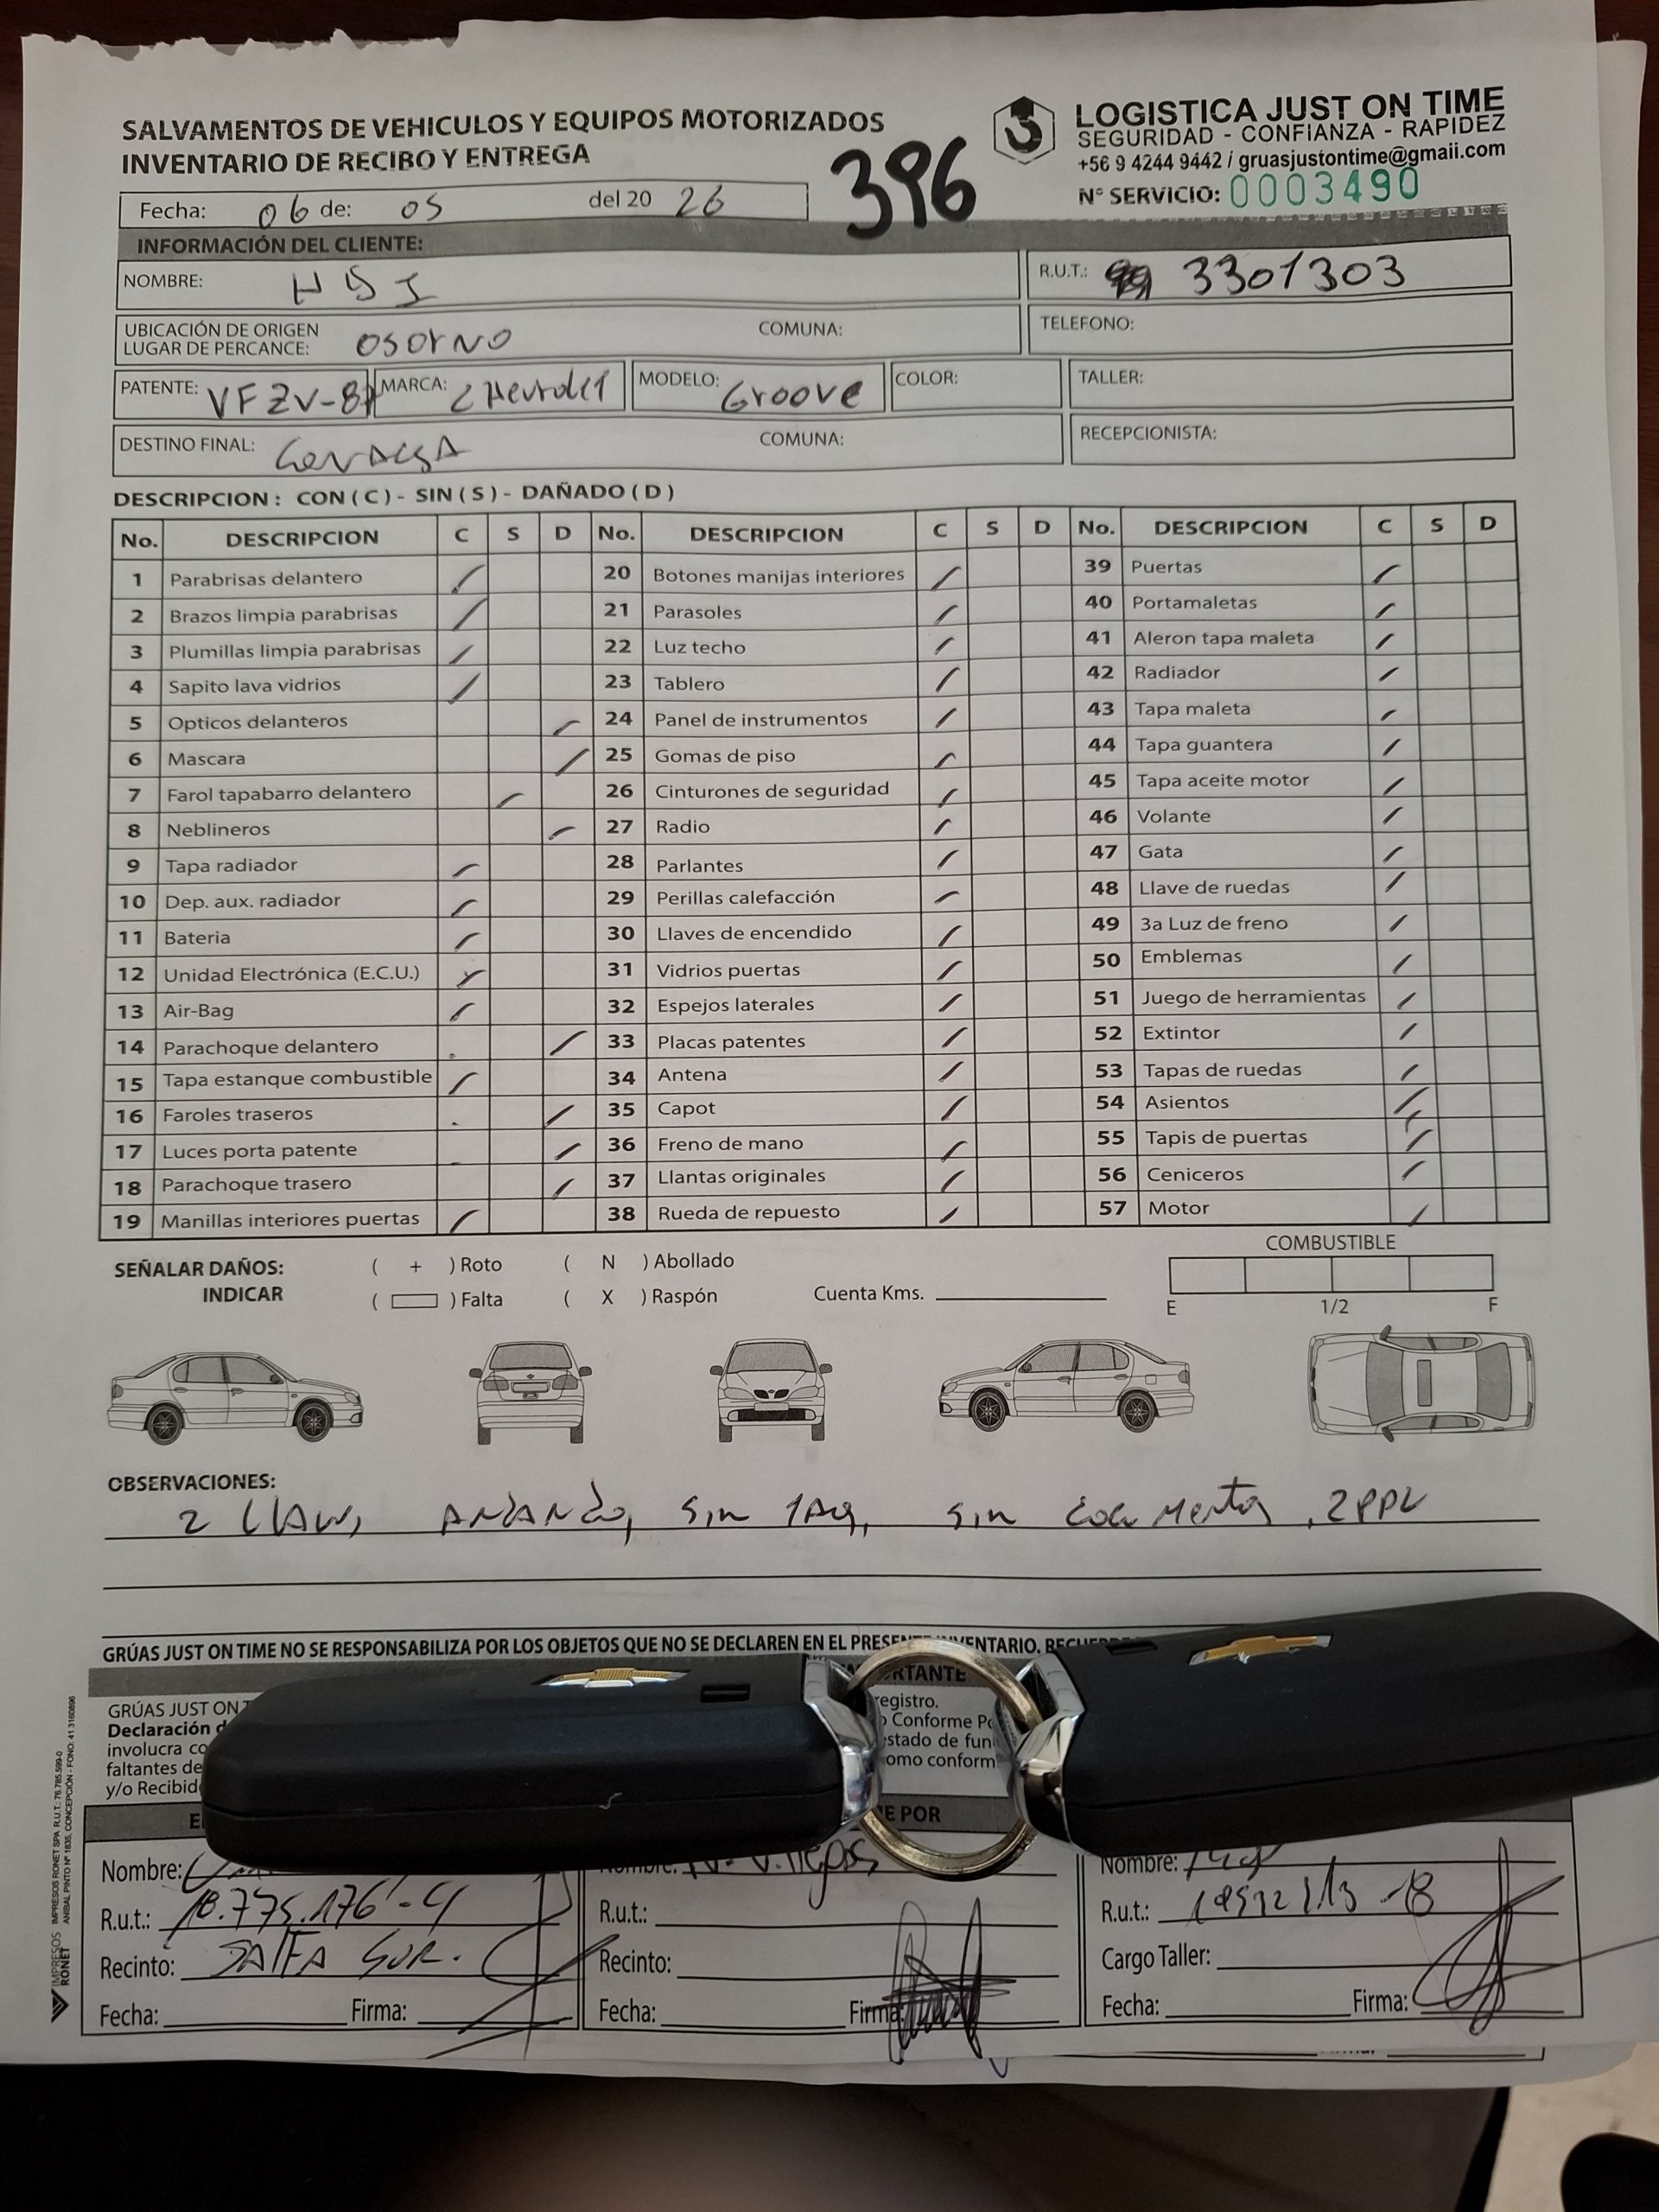 SALVAMENTOS DE VEHICULOS Y EQUIPOS MOTORIZADOS
INVENTARIO DE RECIBO Y ENTREGA
396
LOGISTICA JUST ON TIME
SEGURIDAD - CONFIANZA - RAPIDEZ
+56 9 4244 9442 / gruasjustontime@gmail.com
N° SERVICIO: 0003490
Fecha: 06 de: 05 del 20 26
INFORMACIÓN DEL CLIENTE:
NOMBRE: HDI R.U.T.: 3301303
UBICACIÓN DE ORIGEN
LUGAR DE PERCANCE: OSORNO COMUNA: TELEFONO:
PATENTE: VFZV-8 MARCA: CHevrolet MODELO: Groove COLOR: TALLER:
DESTINO FINAL: COMUNA: RECEPCIONISTA:
DESCRIPCION : CON ( C ) - SIN ( S ) - DAÑADO ( D )
No. DESCRIPCION C S D No. DESCRIPCION C S D No. DESCRIPCION C S D
1 Parabrisas delantero 20 Botones manijas interiores 39 Puertas
2 Brazos limpia parabrisas 21 Parasoles 40 Portamaletas
3 Plumillas limpia parabrisas 22 Luz techo 41 Aleron tapa maleta
4 Sapito lava vidrios 23 Tablero 42 Radiador
5 Opticos delanteros 24 Panel de instrumentos 43 Tapa maleta
6 Mascara 25 Gomas de piso 44 Tapa guantera
7 Farol tapabarro delantero 26 Cinturones de seguridad 45 Tapa aceite motor
8 Neblineros 27 Radio 46 Volante
9 Tapa radiador 28 Parlantes 47 Gata
10 Dep. aux. radiador 29 Perillas calefacción 48 Llave de ruedas
11 Bateria 30 Llaves de encendido 49 3a Luz de freno
12 Unidad Electrónica (E.C.U.) 31 Vidrios puertas 50 Emblemas
13 Air-Bag 32 Espejos laterales 51 Juego de herramientas
14 Parachoque delantero 33 Placas patentes 52 Extintor
15 Tapa estanque combustible 34 Antena 53 Tapas de ruedas
16 Faroles traseros 35 Capot 54 Asientos
17 Luces porta patente 36 Freno de mano 55 Tapis de puertas
18 Parachoque trasero 37 Llantas originales 56 Ceniceros
19 Manillas interiores puertas 38 Rueda de repuesto 57 Motor
SEÑALAR DAÑOS: ( + ) Roto ( N ) Abollado COMBUSTIBLE
INDICAR ( ) Falta ( X ) Raspón Cuenta Kms. E 1/2 F
OBSERVACIONES:
2 llaves, ANDANDO, sin TAG, sin documentos, 2PPU
GRÚAS JUST ON TIME NO SE RESPONSABILIZA POR LOS OBJETOS QUE NO SE DECLAREN EN EL PRESENTE INVENTARIO.
RTANTE
GRÚAS JUST ON T registro.
Declaración d Conforme
involucra co stado de fun
faltantes de omo conform
y/o Recibid
E POR
Nombre: Nombre: Nombre:
R.u.t.: 18.775.176-4 R.u.t.: R.u.t.:
Recinto: SALFA SUR. Recinto: Cargo Taller:
Fecha: Firma: Fecha: Firma: Fecha: Firma:
IMPRESOS RONET
IMPRESOS RONET SPA R.U.T.: 76.785.599-0
ANIBAL PINTO Nº 1835, CONCEPCIÓN - FONO: 41 3160896